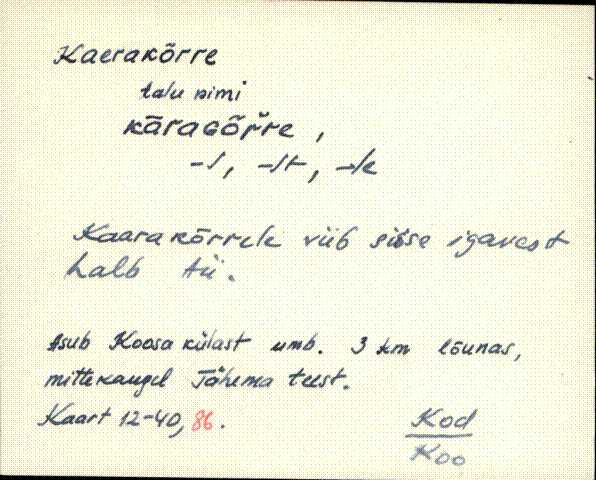 Kaerakõrre
talu nimi
kāraGõr̆re,
-s, -st, -le
Kaarakõrrele viib sisse igavest
halb tii.
Asub Koosa külast umb. 3 km lõunas,
mittekaugel Tähema teest.
Kaart 12-40, 86.
Kod
Koo